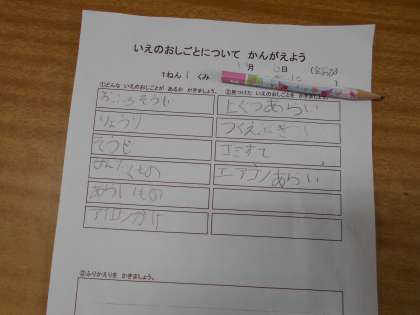 いえのおしごとについて かんがえよう
月 日
1ねん 1 くみ
①どんな いえのおしごとが あるか かきましょう。
②見つけた いえのおしごとを かきましょう。
おふろそうじ
りょうり
そうじ
せんたくもの
あらいもの
アイロンがけ
上ぐつあらい
つくえふき
ゴミすて
エアコンあらい
②ふりかえりを かきましょう。